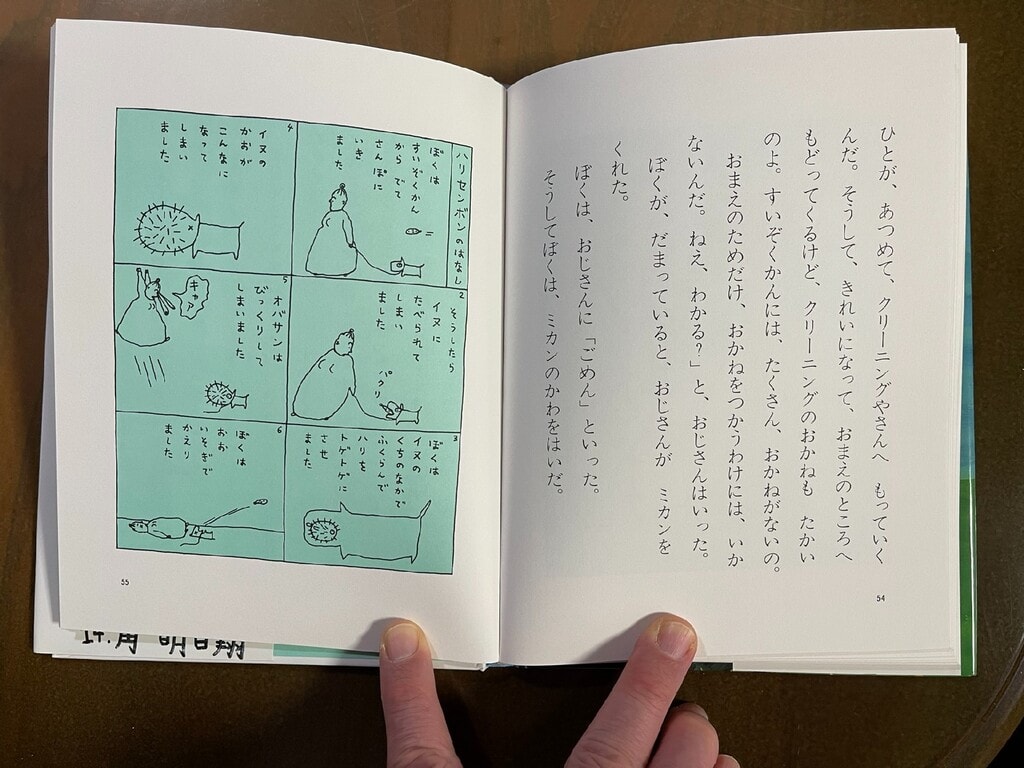 ひとが、あつめて、クリーニングやさんへ　もっていく
んだ。そうして、きれいになって、おまえのところへ
もどってくるけど、クリーニングのおかねも　たかい
のよ。すいぞくかんには、たくさん、おかねがないの。
おまえのためだけ、おかねをつかうわけには、いか
ないんだ。ねえ、わかる？」と、おじさんはいった。
ぼくが、だまっていると、おじさんが　ミカンを
くれた。
ぼくは、おじさんに「ごめん」といった。
そうしてぼくは、ミカンのかわをはいだ。
54
ハリセンボンのはなし
ぼくは
すいぞくかん
から　でて
さんぽに
いき
ました
2
そうしたら
イヌに
たべられて
しまい
ました
パクリ
3
ぼくは
イヌの
くちのなかで
ふくらんで
ハリを
トゲトゲに
させ
ました
4
イヌの
かおが
こんなに
なって
しまい
ました
5
オバサンは
びっくりして
しまいました
キャア
6
ぼくは
おお
いそぎで
かえり
ました
55
明日翔